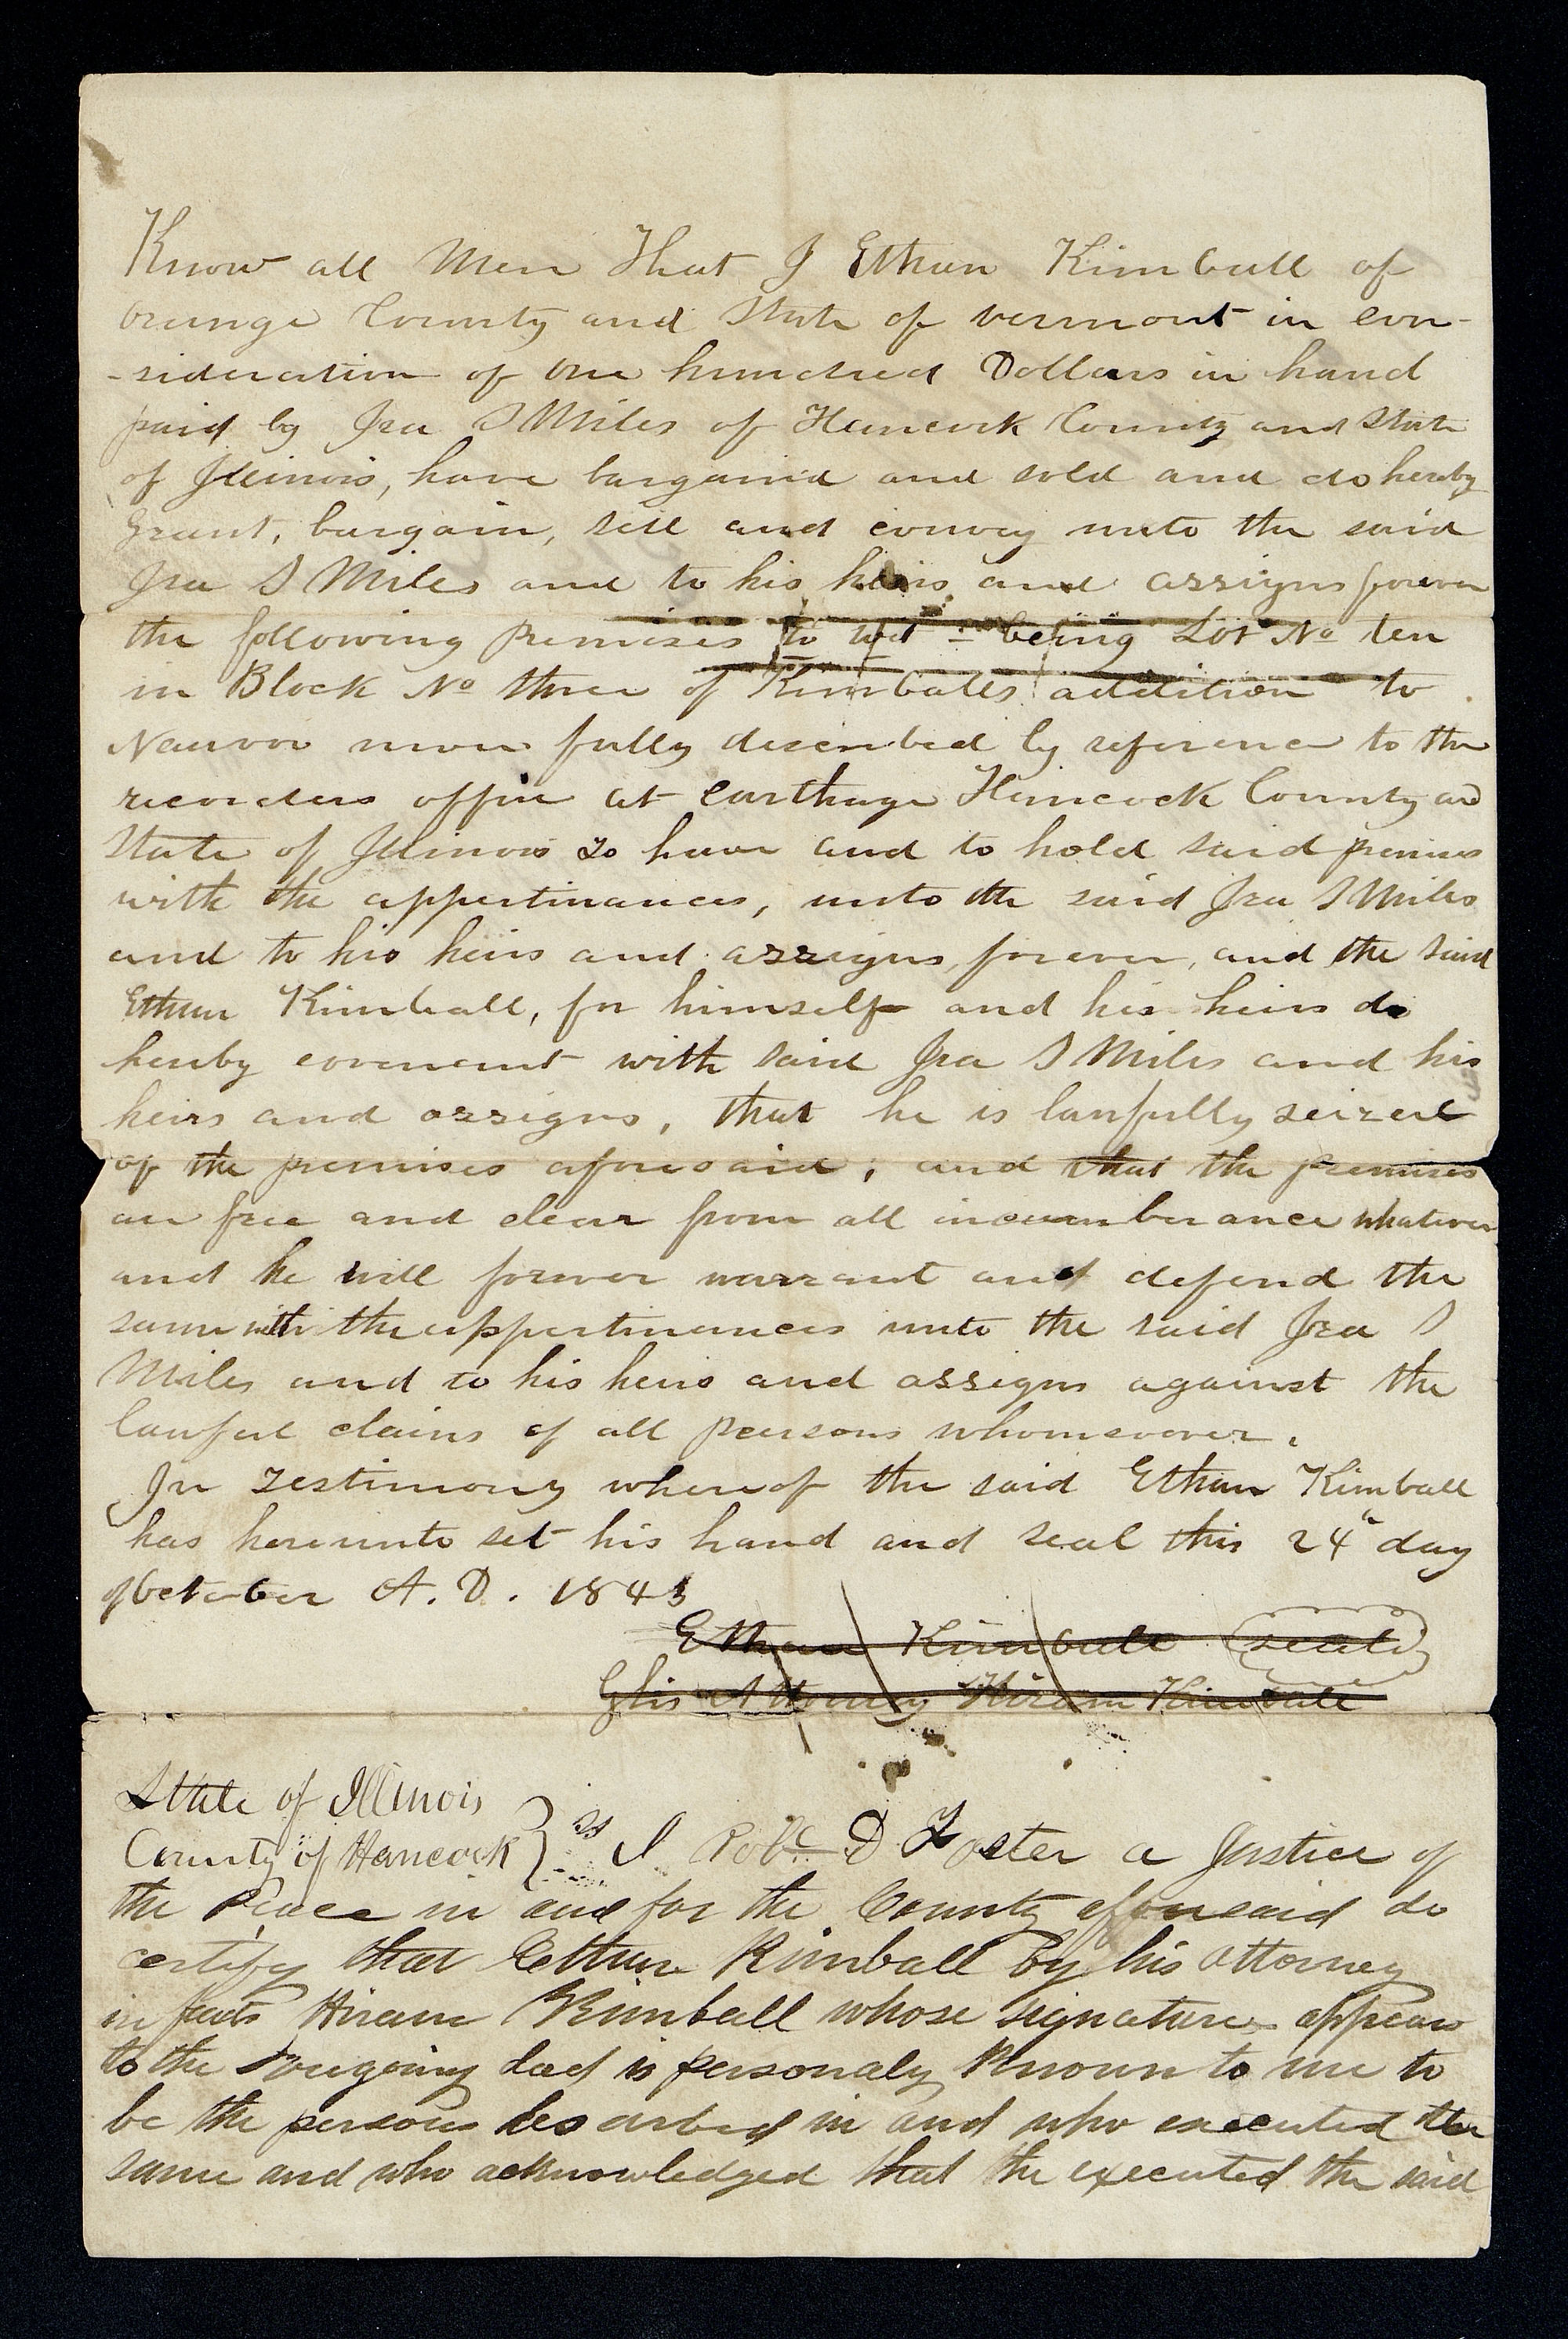 Know all Men That I Ethan Kimball of
orange County and State of vermont in con-
-sideration of one hundred Dollars in hand
paid by Ira S Miles of Hancock County and State
of Illinois, have bargaind and sold and do hereby
Grant, bargain, sell and convey unto the said
Ira S Miles and to his heirs and assigns forever
the following Premises to wit - being Lot No ten
in Block No three of Kimballs addition to
Nauvoo more fully described by reference to the
recorders office at Carthage Hancock County and
State of Illinois To have and to hold said premises
with the appertinances, unto the said Ira S Miles
and to his heirs and assigns, forever, and the said
Ethan Kimball, for himself and his heirs do
hereby covenant with said Ira S Miles and his
heirs and assigns, that he is lawfully seized
of the premises aforesaid, and that the premises
are free and clear from all incumberance whatever
and he will forever warrant and defend the
same with the appertinances unto the said Ira S
Miles and to his heirs and assigns against the
lawful claims of all persons whomsoever.
In Testimony whereof the said Ethan Kimball
has hereunto set his hand and seal this 24" day
of October A. D. 1843
Ethan Kimball seal
By his Attorney Hiram Kimball
State of Illinois
County of Hancock } ss I Robt D Foster a Justice of
the Peace in and for the County aforesaid do
certify that Ethan Kimball by his attorney
in facts Hiram Kimball whose signature appears
to the foregoing deed is personaly Known to me to
be the persons described in and who executed the
same and who acknowledged that the executed the said